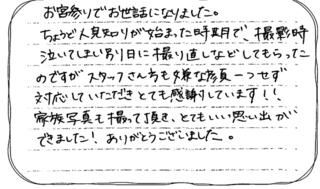 お宮参りでお世話になりました。
ちょうど人見知りが始まった時期で、撮影時
泣いてしまい別日に撮り直しなどしてもらった
のですがスタッフさん方も嫌な顔一つせず
対応していただきとても感謝しています!!
家族写真も撮って頂き、とてもいい思い出が
できました!ありがとうございました。